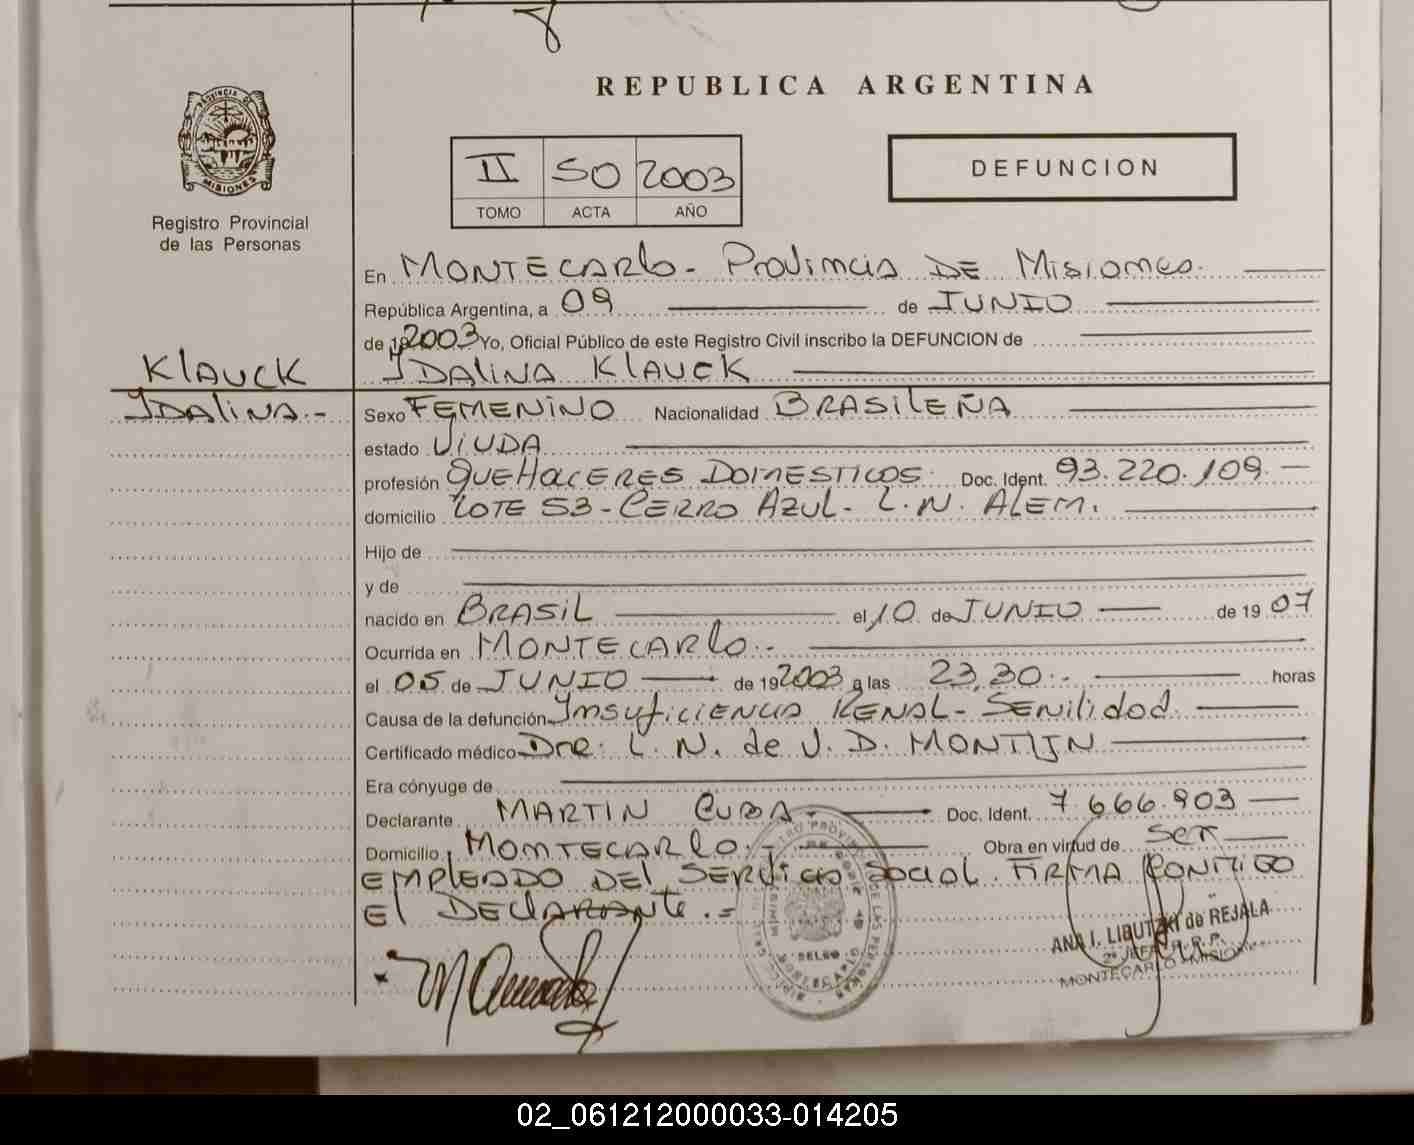 REPUBLICA ARGENTINA
PROVINCIA DE MISIONES
Registro Provincial
de las Personas
II 50 2003
TOMO ACTA AÑO
DEFUNCION
En MONTECARLO - Provincia DE Misiones.
República Argentina, a 09 de JUNIO
de 19 2003 Yo, Oficial Público de este Registro Civil inscribo la DEFUNCION de
KLAUCK
IDALINA KLAUCK
IDALINA.-
Sexo FEMENINO Nacionalidad BRASILEÑA
estado VIUDA
profesión QUEHACERES DOMESTICOS. Doc. Ident. 93.220.109.
domicilio LOTE 53 - CERRO AZUL - L.N. ALEM.
Hijo de
y de
nacido en BRASIL el 10 de JUNIO de 19 07
Ocurrida en MONTECARLO.-
el 05 de JUNIO de 19 2003 a las 23,30.- horas
Causa de la defunción Insuficiencia RENAL - Senilidad.
Certificado médico Dra. L. N. de V. D. MONTIJN
Era cónyuge de
Declarante MARTIN CUBA.- Doc. Ident. 7.666.903
Domicilio MONTECARLO.- Obra en virtud de ser
EMPLEADO DEL SERVICIO SOCIAL. FIRMA CONMIGO
El DECLARANTE.=
ANA I. LIBUTZKI de REJALA
MONTECARLO - MISIONES
02_061212000033-014205